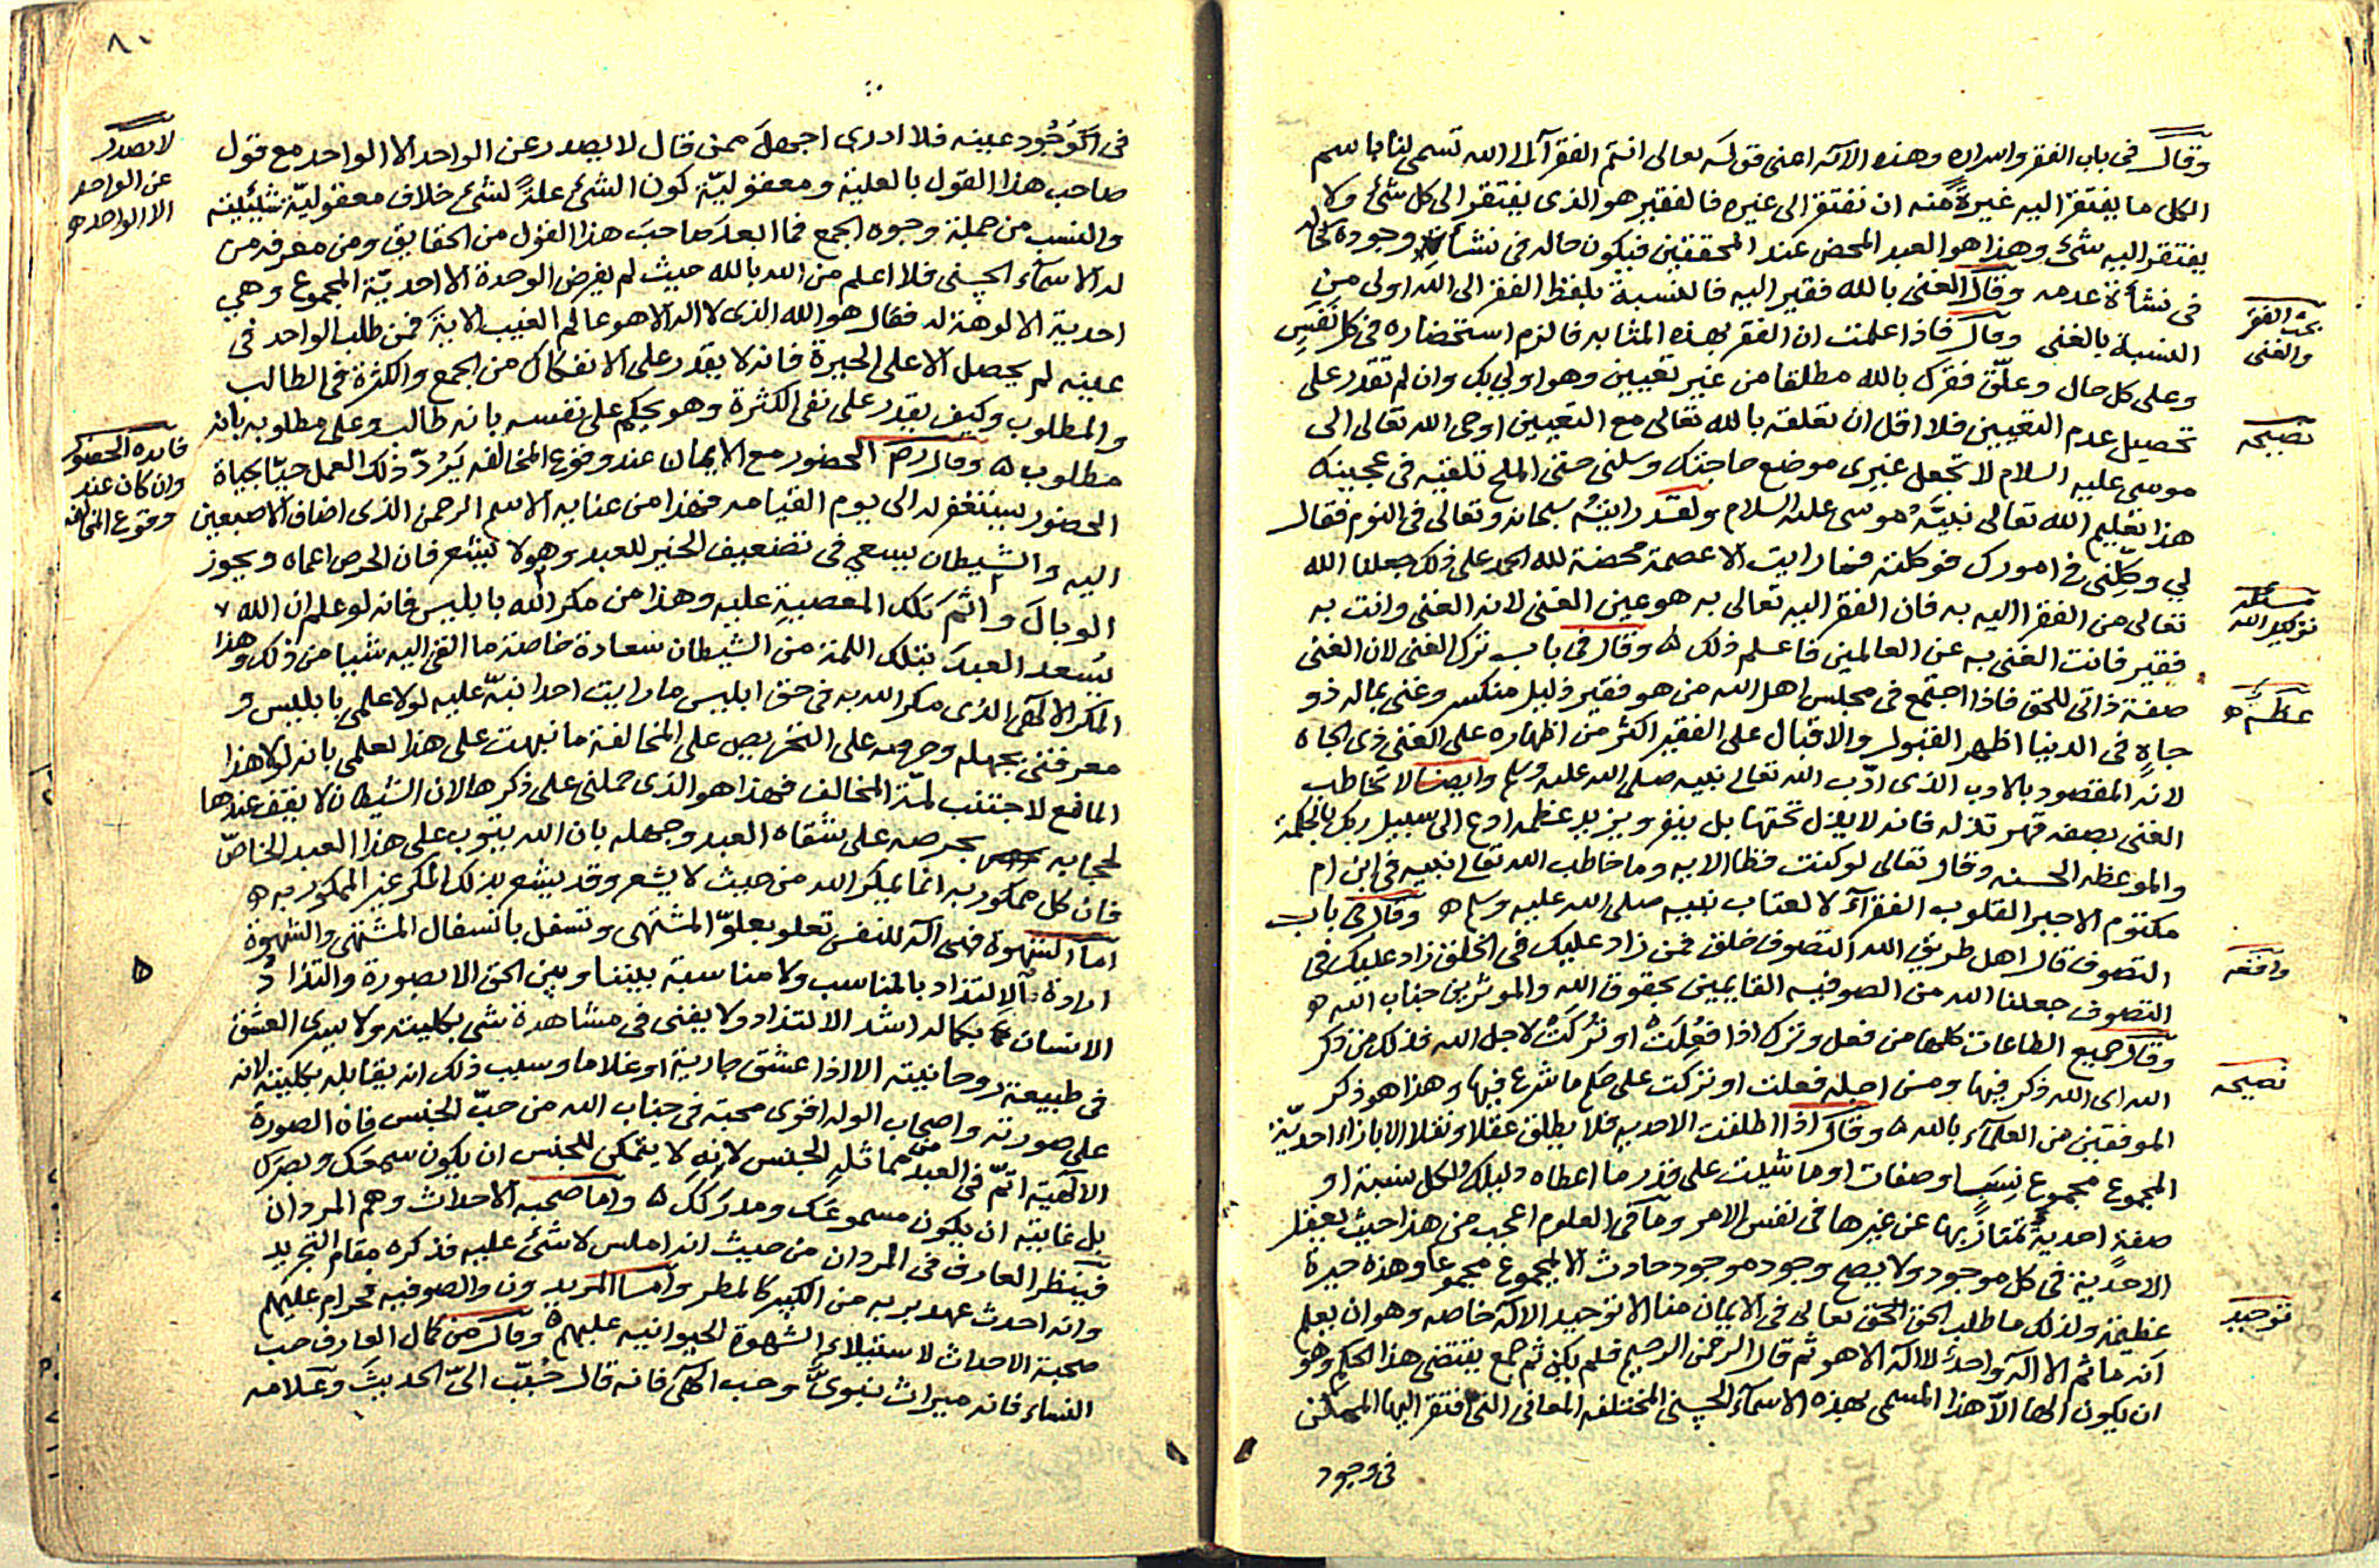 وقال في باب الفقر واسراره وهذه الآية اعني قوله تعالى انتم الفقرآء الى الله تسمى لنا باسم
الكل ما يفتقر اليه غيرةً منه ان نفتقر الى غيره فالفقير هو الذى يفتقر الى كل شئ ولا
يفتقر اليه شئ وهذا هو العبد المحض عند المحققين فيكون حاله فى نشأة وجوده كحاله
فى نشأة عدمه وقال الغنى بالله فقير اليه فالنسبة بلفظ الفقر الى الله اولى من
النسبة بالغنى وقال فاذا علمت ان الفقر بهذه المثابه فالزم استحضاره فى كل نفس
وعلى كل حال وعلّق فقرك بالله مطلقا من غير تعيين وهو اولى بك وان لم تقدر على
تحصيل عدم التعيين فلا اقل ان تعلقه بالله تعالى مع التعيين اوحى الله تعالى الى
موسى عليه السلام لا تجعل غيرى موضع حاجتك وسلنى حتى الملح تلقيه فى عجينك
هذا تعليم الله تعالى نبيّه موسى عليه السلام ولقد رايته سبحانه وتعالى فى النوم فقال
لي وكّلنى فى امورك فوكلته فما رايت الا عصمة محضة لله الحمد على ذلك جعلنا الله
تعالى من الفقرا اليه به فان الفقر اليه تعالى به هو عين الغنى لانه الغنى وانت به
فقير فانت الغنى به عن العالمين فاعلم ذلك ه وقال فى باب ترك الغنى لان الغنى
صفة ذاتى للحق فاذا اجتمع فى مجلس اهل الله من هو فقير ذليل منكسر وغنى بماله ذو
جاهٍ فى الدنيا اظهر القبول والاقبال على الفقير اكثر من اظهاره على الغنى ذى الجاه
لانه المقصود بالادب الذى ادّب الله تعالى نبيه صلى الله عليه وسلم وايضا لا تخاطب
الغنى بصفه قهر تذله فانه لا يذل تحتها بل ينفر ويزيد عظمه ادع الى سبيل ربك بالحكمة
والموعظه الحسنه وقال تعالى لو كنت فظا الايه وما خاطب الله تعالى نبيه فى ابن ام
مكتوم الا جبر القلوب الفقرآء لا لعتاب نبيه صلى الله عليه وسلم ه وقال فى باب
التصوف قال اهل طريق الله التصوف خلق فمن زاد عليك فى الخلق زاد عليك فى
التصوف جعلنا الله من الصوفيه القايمين بحقوق الله والموثرين جناب الله ه
وقال جميع الطاعات كلها من فعل وترك اذا فُعِلَتْ او تُرِكَتْ لاجل الله فذلك من ذكر
الله اى الله ذكر فيها ومن اجله فعلت او تركت على حكم ما شرع فيها وهذا هو ذكر
الموفقين من العلمآء بالله ه وقال اذا اطلقت الاحديه فلا يطلق عقلا ونقلا الا بازاء احديّة
المجموع مجموع نِسَبٍ او صفات او ما شيت على قدر ما اعطاه دليلك ولكل نسبة او
صفةٍ احديةٌ تمتاز بها عن غيرها فى نفس الامر وما فى العلوم اعجب من هذا حيث يعقل
الاحدية فى كل موجود ولا يصح وجود موجود حادث الا لمجموع مجموعا وهذه حيرة
عظيمة ولذلك ما طلب الحق الحق تعالى فى الايمان منا الا توحيد الآله خاصه وهو ان يعلم
انه ما ثم الا اله واحد لا اله الا هو ثم قال الرحمن الرحيم فلم يكن ثم جمع يقتضى هذا الحكم وهو
ان يكون الها الا هذا المسمى بهذه الاسمآء الحسنى المختلفه المعانى التى افتقر اليها الممكن
فى وجود
بحث الفقر
والغنى
نصيحه
توكيل الله
واقعه
نصيحه
توحيد
٨٠
فى الوُجُود عينه فلا ادرى اجهلَ ممن قال لا يصدر عن الواحد الا الواحد مع قول
صاحب هذا القول بالعلية ومعقوليّة كون الشئ علةً لشئ خلاف معقوليّة شيئيته
والنسب من جملة وجوه الجمع فما ابعد صاحبَ هذا القول من الحقايق ومن معرفة من
له الاسمآء الحسنى فلا اعلم من الله بالله حيث لم يفرض الوحدة الا احديّة المجموع وهي
احدية الالوهة له فقال هو الله الذى لا اله الا هو عالم الغيب الاية فمن طلب الواحد فى
عينه لم يحصل الا على الحيرة فانه لا يقدر على الانفكاك من الجمع والكثرة فى الطالب
والمطلوب وكيف يقدر على نفى الكثرة وهو يحكم على نفسه بانه طالب وعلى مطلوبه بانه
مطلوب ه وقال رح الحضور مع الايمان عند وقوع المخالفه يَرُدّ ذلك العمل حيّا بحياة
الحضور يستغفر له الى يوم القيامه فهذا من عنايه الاسم الرحمن الذى اضاف الاصبعين
اليه والشيطان يسعي فى تضعيف الخير للعبد وهو لا يشعر فان الحرص اعماه ويجوز
الوبالَ واثمَ تلك المعصية عليه وهذا من مكر الله بابليس فانه لو علم ان الله
يُسعد العبدَ بتلك اللمة من الشيطان سعادة خاصة ما القى اليه شيا من ذلك وهذا
المكر الالهى الذى مكر الله به فى حق ابليس ما رايت احدا نبّه عليه لولا علمى بابليس و
معرفتى بجهله وحرصه على التحريص على المخالفة ما نبهت على هذا لعلمى بانه لولا هذا
المانع لاجتنب لمّة المخالف فهذا هو الذى حملنى على ذكرها لان الشيطان لا يقف عندها
لحجابه بحرصه على شقاء العبد وجهله بان الله يتوب على هذا العبد الخاصّ
فان كل ممكور به انما يمكر الله من حيث لا يشعر وقد يشعر بذلك المكر غير الممكور به ه
اما الشهوة فهى آلة للنفس تعلو بعلوّ المشتهى وتسفل باتسفال المشتهى والشهوة
ارادة الالتذاذ بالمناسب ولا مناسبة بيننا وبين الحق الا بصورة والتذاذُ
الانسان بكماله اشد الالتذاذ ولا يفنى فى مشاهدة شى بكليته ولا يسرى العشق
فى طبيعته روحانيته الا اذا عشق جارية او غلاما وسبب ذلك انه يقابله بكليته لانه
على صورته واصحاب الوله اقوى محبة فى جناب الله من حبّ الجنس فان الصورة
الالهية اتمّ فى العبد من مماثله الجنس لانه لا يتمكن للجنس ان يكون سمعك وبصرك
بل غايته ان يكون مسموعَك ومدركك ه واما صحبه الاحداث وهم المردان
فينظر العارف فى المردان من حيث انه املس لا شئ عليه فذكره مقام التجريد
وانه احدث عهد بربه من الكبير كالمطر واما المريدون والصوفيه فحرام عليهم
صحبة الاحداث لاستيلاء الشهوة الحيوانيه عليهم ه وقال من كمال العارف حب
النساء فانه ميراث نبوىّ وحب الهى فانه قال حُبّب الىّ الحديثَ وعلامه
لا يصدر
عن الواحد
الا الواحد ه
فايده الحضور
وان كان عند
وقوع المخالفه